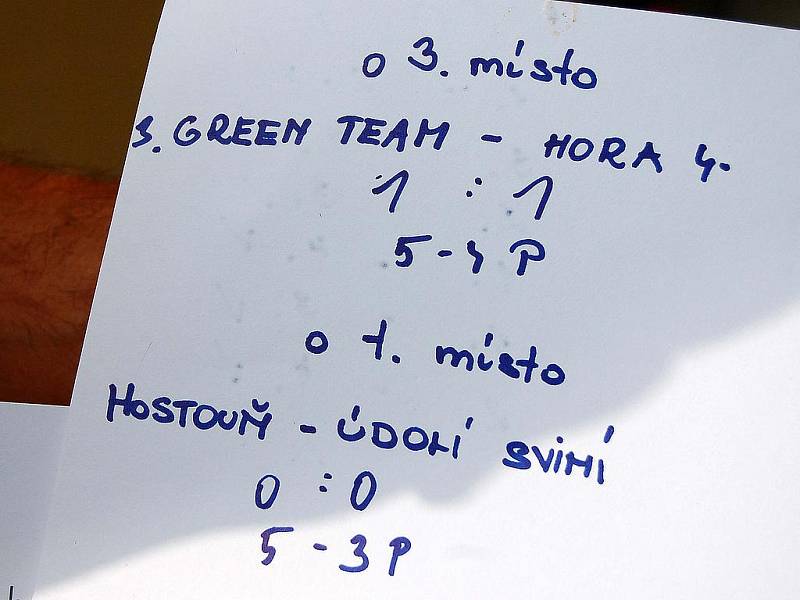 o 3. místo
3. GREEN TEAM - HORA 4.
1 : 1
5-4 P
o 1. místo
HOSTOUŇ - ÚDOLÍ SVINÍ
0 : 0
5 - 3 P